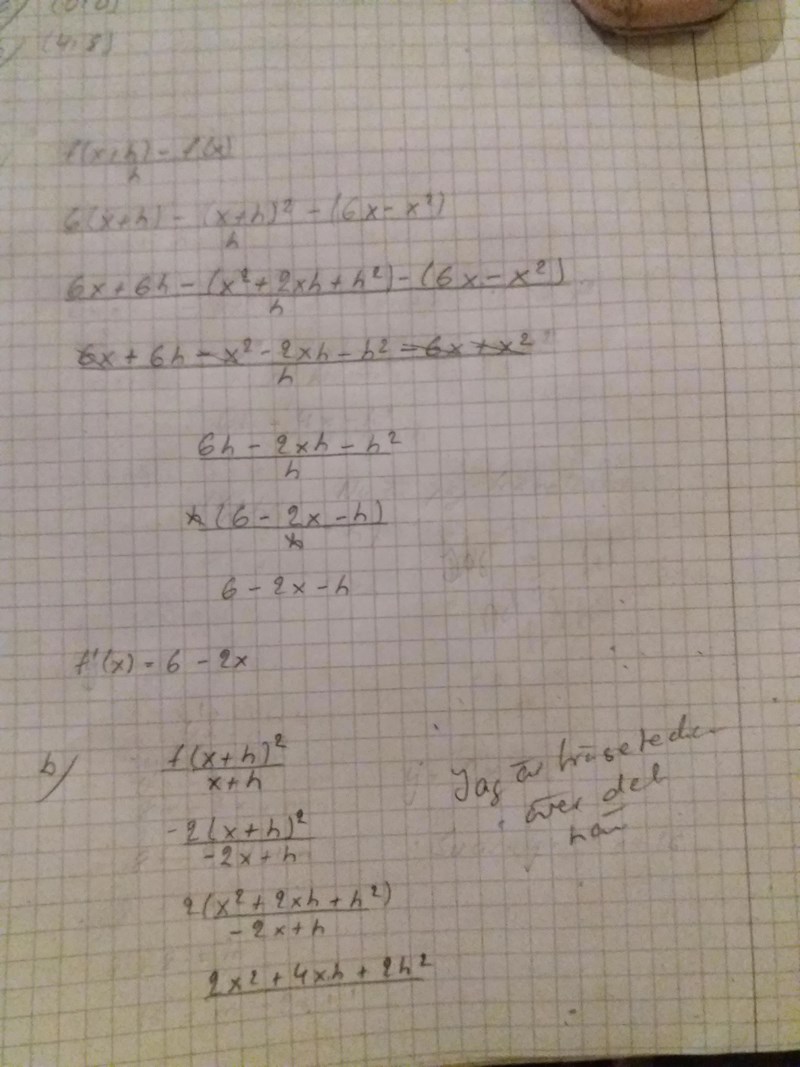 (0,0)
(4,8)
f(x+h) - f(x)
h
6(x+h) - (x+h)² - (6x - x²)
h
6x + 6h - (x² + 2xh + h²) - (6x - x²)
h
6x + 6h - x² - 2xh - h² - 6x + x²
h
6h - 2xh - h²
h
h(6 - 2x - h)
h
6 - 2x - h
f'(x) = 6 - 2x
b) f(x+h)²
x+h
-2(x+h)²
-2x+h
2(x² + 2xh + h²)
-2x+h
2x² + 4xh + 2h²
Jag är
över det
här